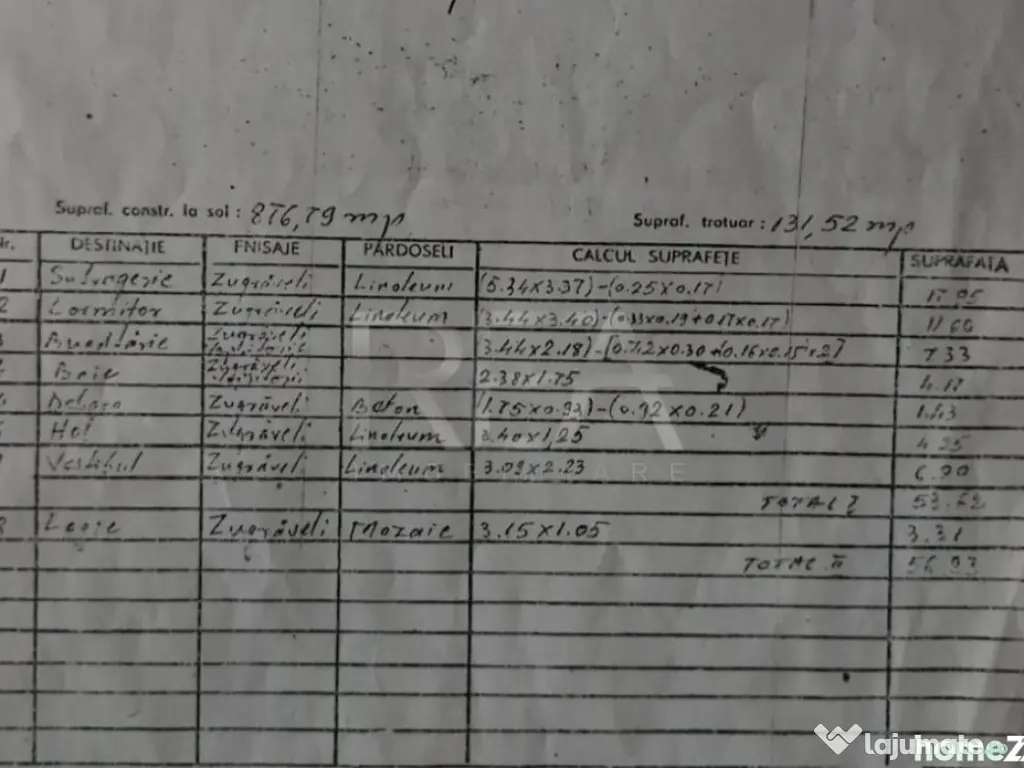 Supraf. constr. la sol : 876,79 mp
Supraf. trotuar : 131,52 mp
Nr. DESTINAȚIE FNISAJE PARDOSELI CALCUL SUPRAFEȚE SUPRAFAȚA
1 Sufragerie Zugrăveli Linoleum (5.34x3.37)-(0.25x0.17)
2 Dormitor Zugrăveli Linoleum (3.44x3.40)-(0.33x0.19+0.17x0.17) 11.60
3 Bucătărie Zugrăveli (3.44x2.18)-[0.42x0.30+0.16x0.15x2] 7.33
Baie Zugrăveli 2.38x1.75 4.17
Debara Zugrăveli Beton (1.75x0.93)-(0.92x0.21) 1.43
Hol Zugrăveli Linoleum 3.40x1,25 4.25
Vestibul Zugrăveli Linoleum 3.09x2.23 6.90
TOTAL I 53.62
8 Logie Zugrăveli Mozaic 3.15x1.05 3.31
TOTAL II 56.93
lajumate
homeZ